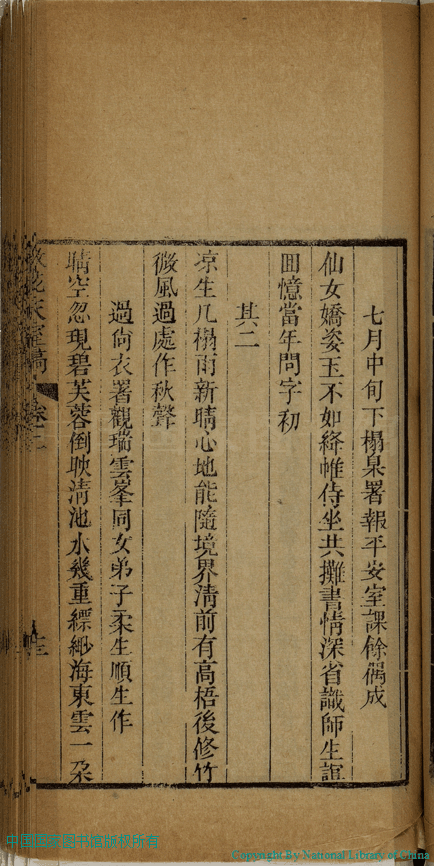 七月中旬下榻臬署報平安室課餘偶成
仙女嬌姿玉不如絳帷侍坐共攤書情深省識師生誼
回憶當年問字初
其二
凉生几榻雨新晴心地能隨境界淸前有高梧後修竹
微風過處作秋聲
過尙衣署觀瑞雲峯同女弟子柔生順生作
晴空忽現碧芙蓉倒映淸池水幾重縹緲海東雲一朶
花
室稿
卷之二
Copyright By National Library of China